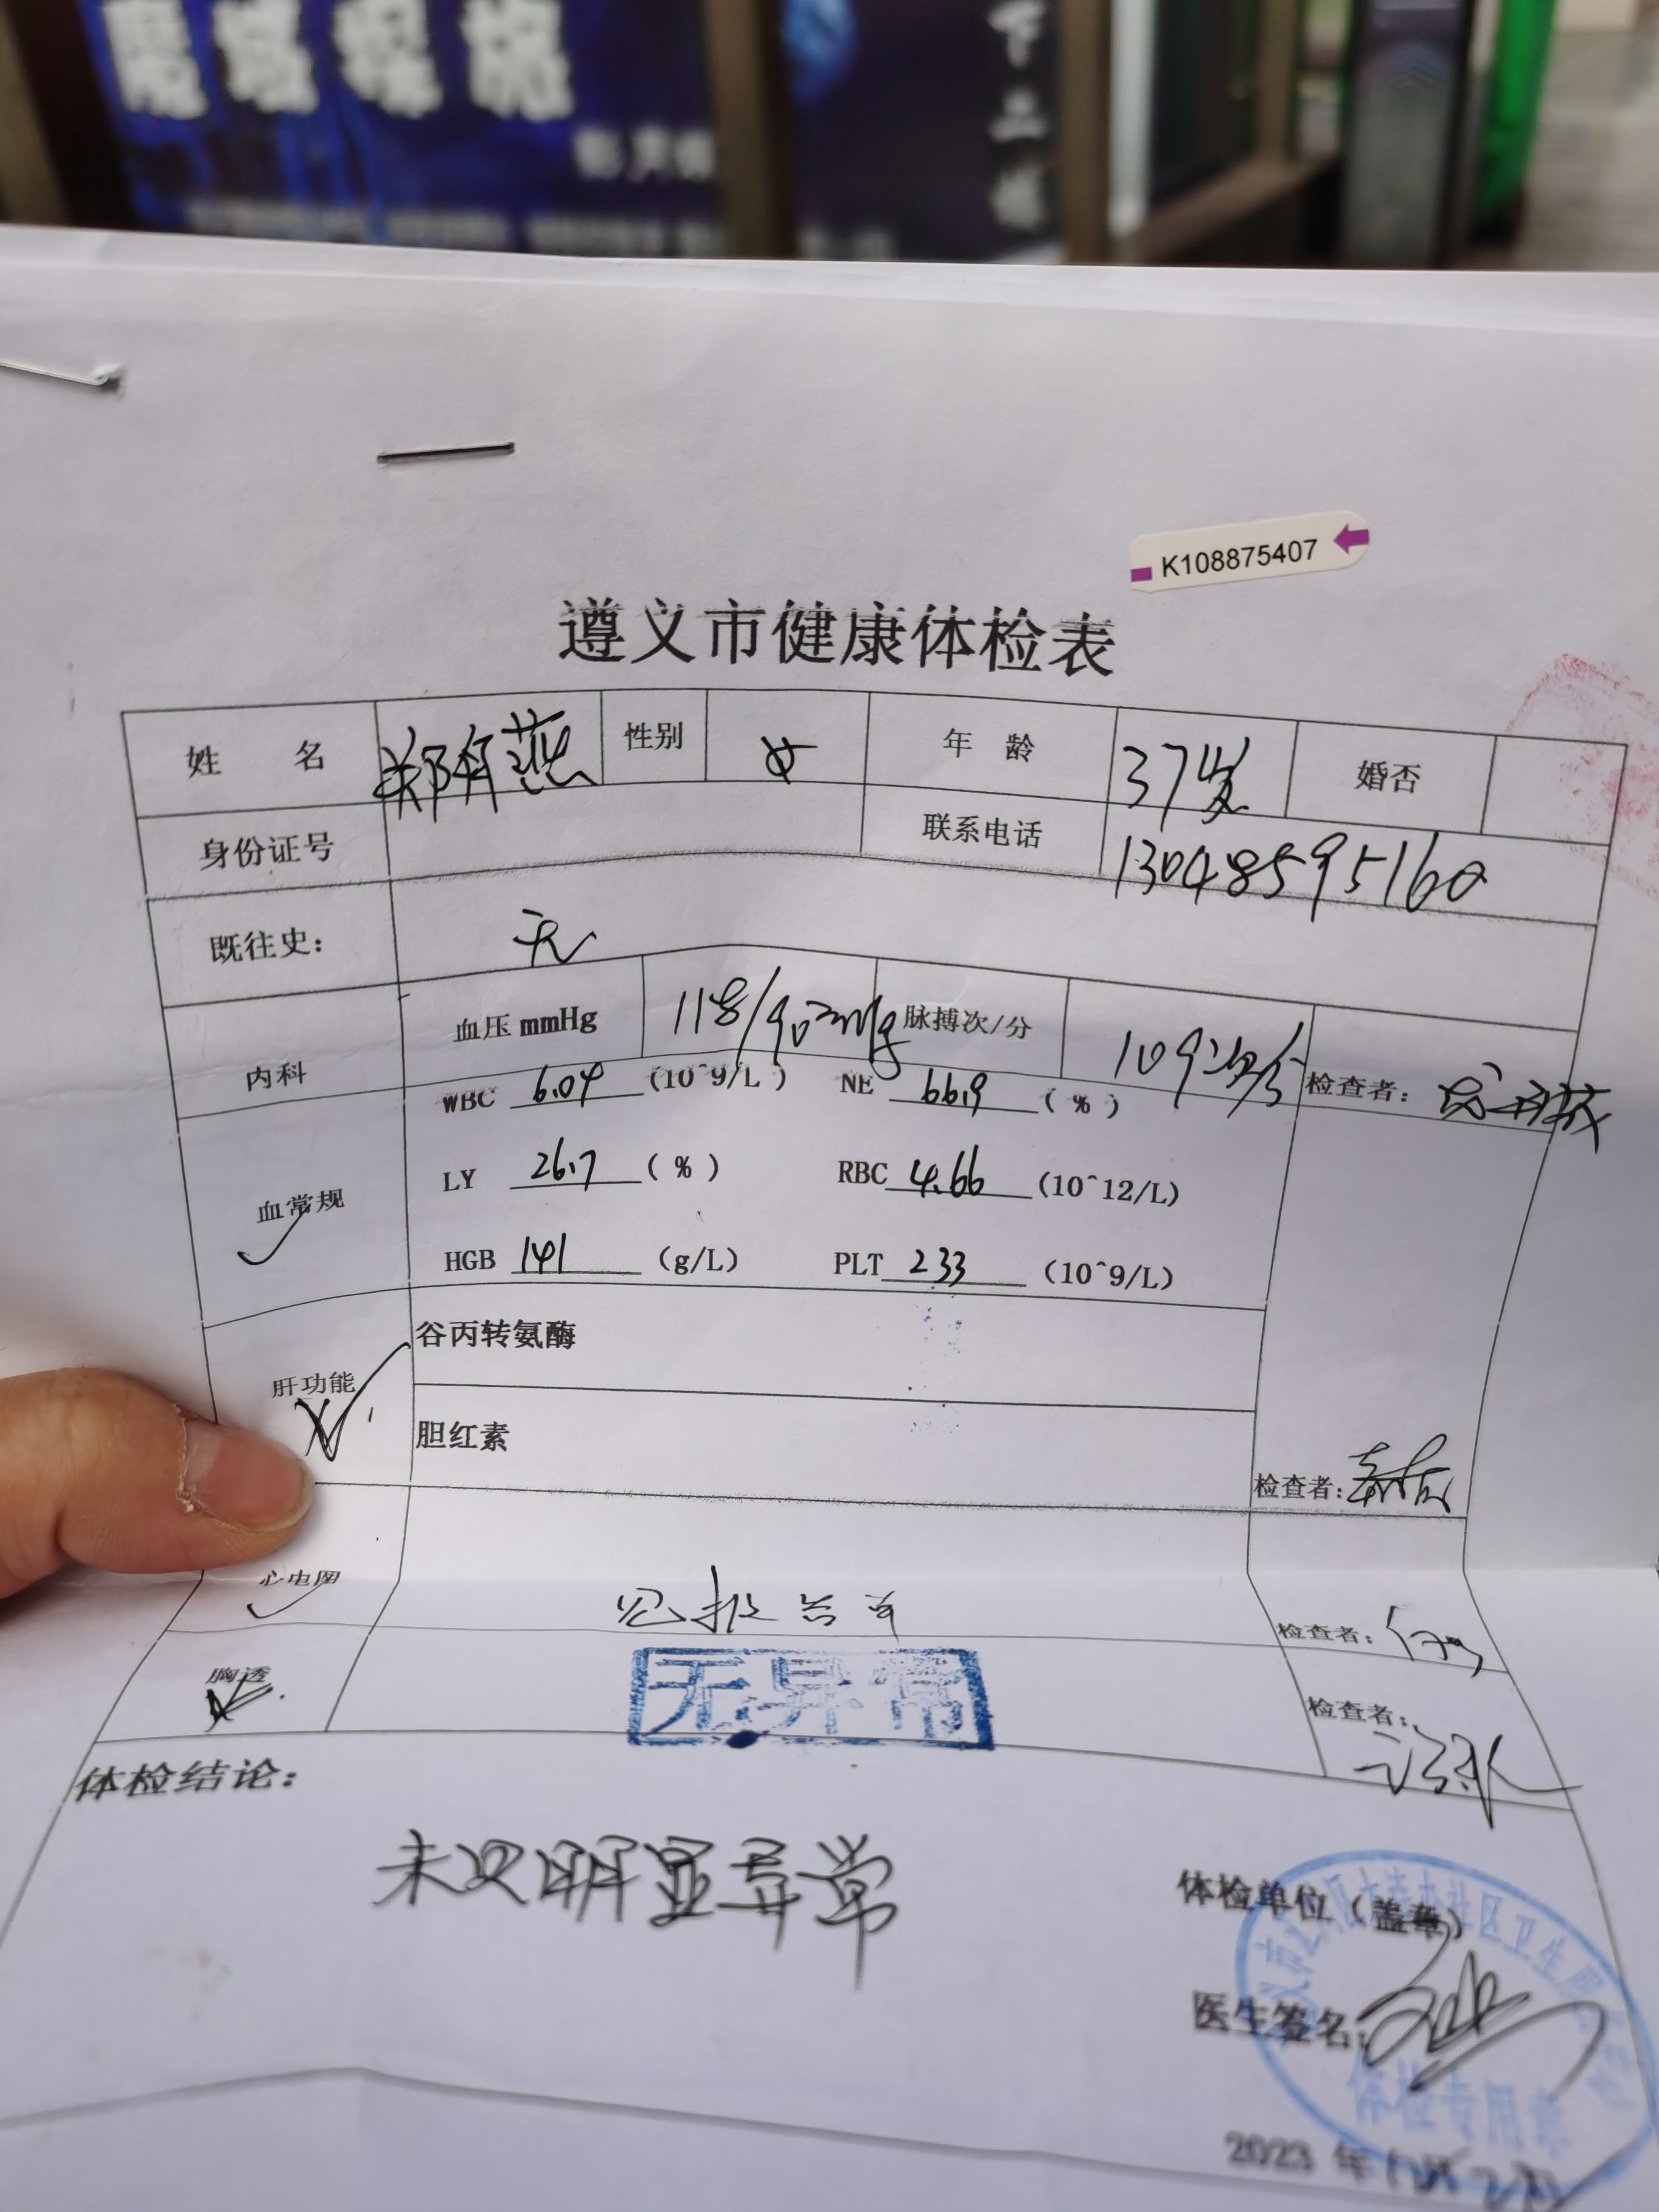 下二楼
K108875407
遵义市健康体检表
姓 名 郑 燕 性别 女 年 龄 37岁 婚否
身份证号 联系电话 13048595160
既往史: 无
内科 血压 mmHg 118/90mmHg 脉搏次/分 109次/分 检查者:
血常规 WBC 6.04 (10^9/L) NE 66.9 (%)
LY 26.7 (%) RBC 4.66 (10^12/L)
HGB 141 (g/L) PLT 233 (10^9/L)
肝功能 谷丙转氨酶
胆红素
检查者:
心电图 见报告单 检查者:
胸透 无异常 检查者:
体检结论:
未见明显异常
体检单位(盖章)
社区卫生服
医生签名:
体检专用章
2023 年